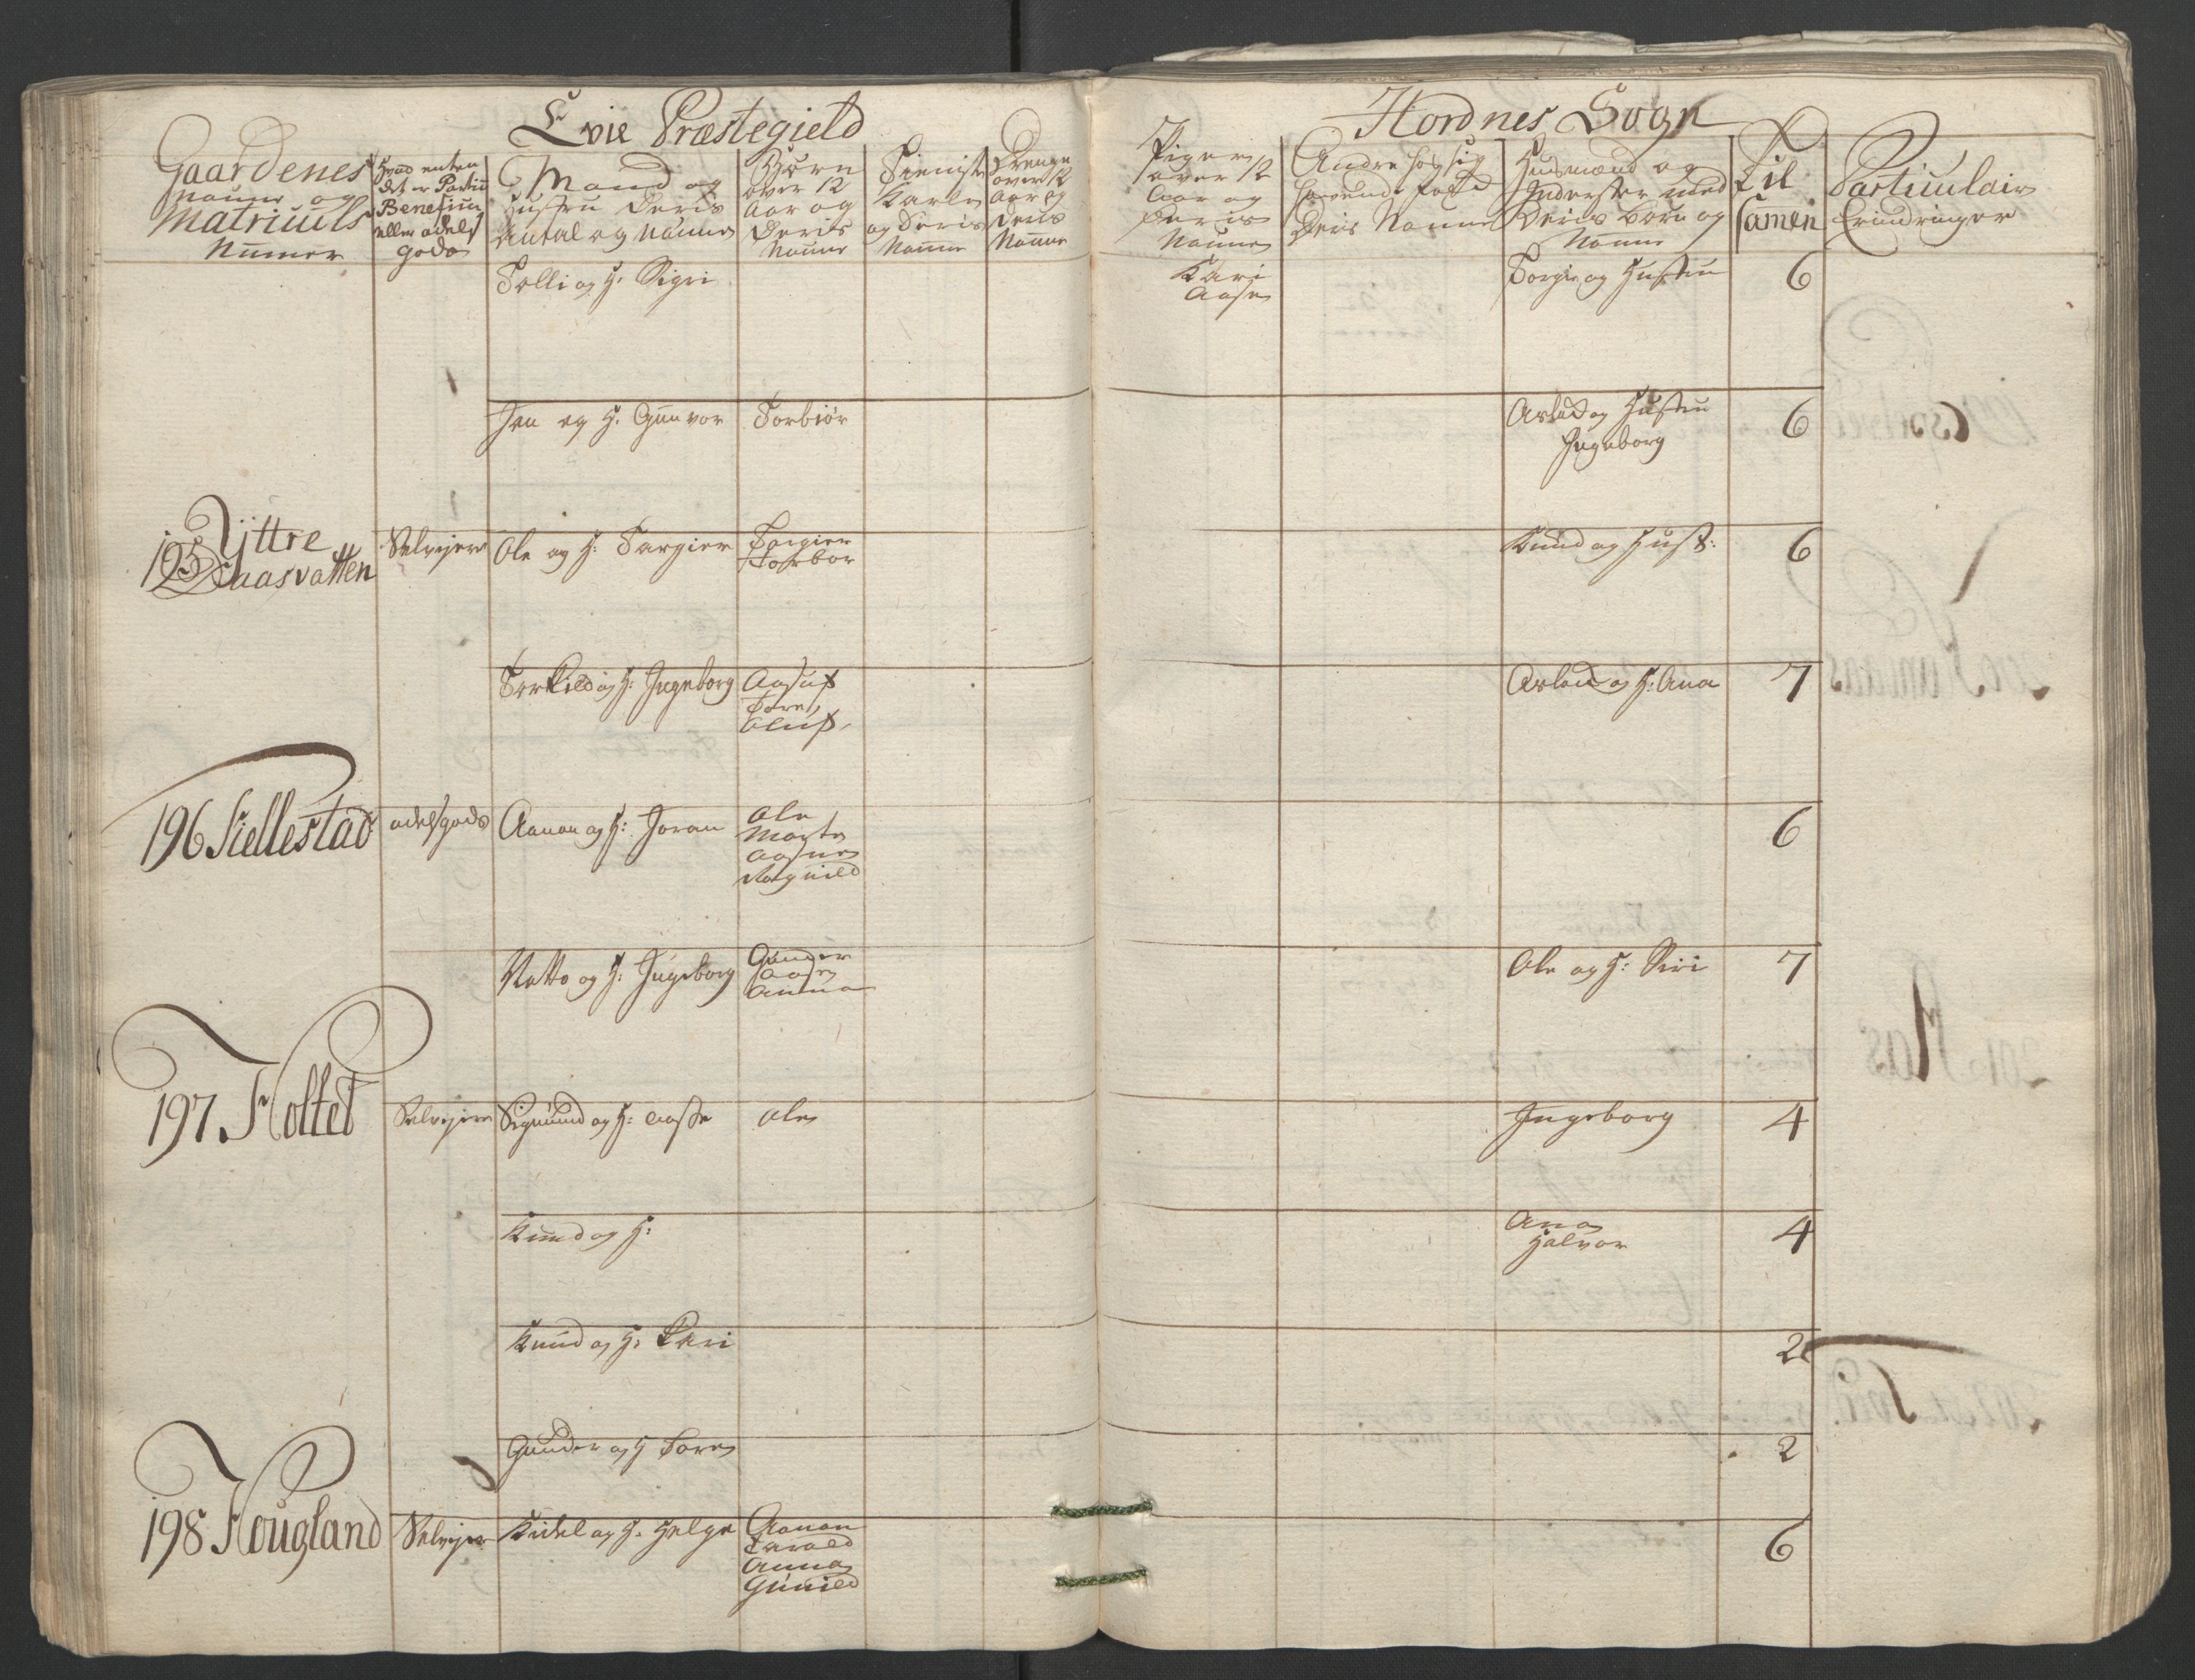 Evie Præstegield
Hordnes Sogn
Gaardenes Naune og Matriculs Numer
Hvad enten det er Particul. Beneficeret eller adels gods
Mand og Hustru Deris Antal og Naune
Børn over 12 Aar og Deris Naune
Tieniste Karle og Deris Naune
Drenge over 12 Aar og Deris Naune
Piger over 12 Aar og Deris Naune
Andre hos sig havende Folk Deris Naune
Husmænd og Inderster med Deris børn og Naune
Til samen
Particulair Erindringer
Tolli og H: Sigri
Kari
Aase
Torgie og Hustru
6
Jen og H. Gunvor
Torbiør
Asland og Hustru
Ingeborg
6
195 Ÿttre
Daasvatten
Selvejer
Ole og H: Targier
Torgier
Torbor
Knud og Hust:
6
Torkild og H: Ingeborg
Aasuf
Tore
Oluf
Asland og H: Ana
7
196 Kiellestad
adelsgods
Aanon og H: Joran
Ole
Marte
Aasne
Ragnild
6
Natto og H: Ingeborg
Gunder
Aase
Anna
Ole og H: Siri
7
197 Holtet
Selvejer
Sigmund og H: Aasse
Ole
Ingeborg
4
Knud og H:
Ana
Halvor
4
Knud og H: Kari
2
Gunder og H Tore
2
198 Hougland
Selvejer
Kidel og H. Helge
Aanon
Tarald
Anna
Gunild
6